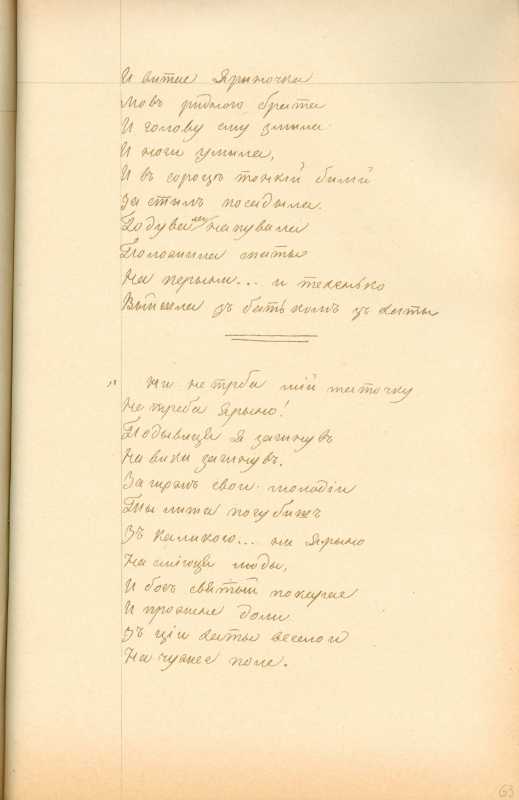 И витае Ярыночка
Мовъ ридного брата
И голову ему змыла
И ноги умыла,
И въ сорощъ тонкій билій
За стилъ посадыла.
Годувала напувала
Положила спаты
На перыни... и тыхенько
Выйшла зъ батькомъ зъ хаты
„ Ни не треба мій таточку
Не треба Ярыно!
Подывыця я загинувъ
На вики загинувъ.
За що жъ свои молодіи
Ты лита погубишъ
Зъ каликою... ни Ярыно
Насміюця люды,
И богъ святый покарае
И прожене долю
Зъ ціи хаты веселои
На чужее поле.
63